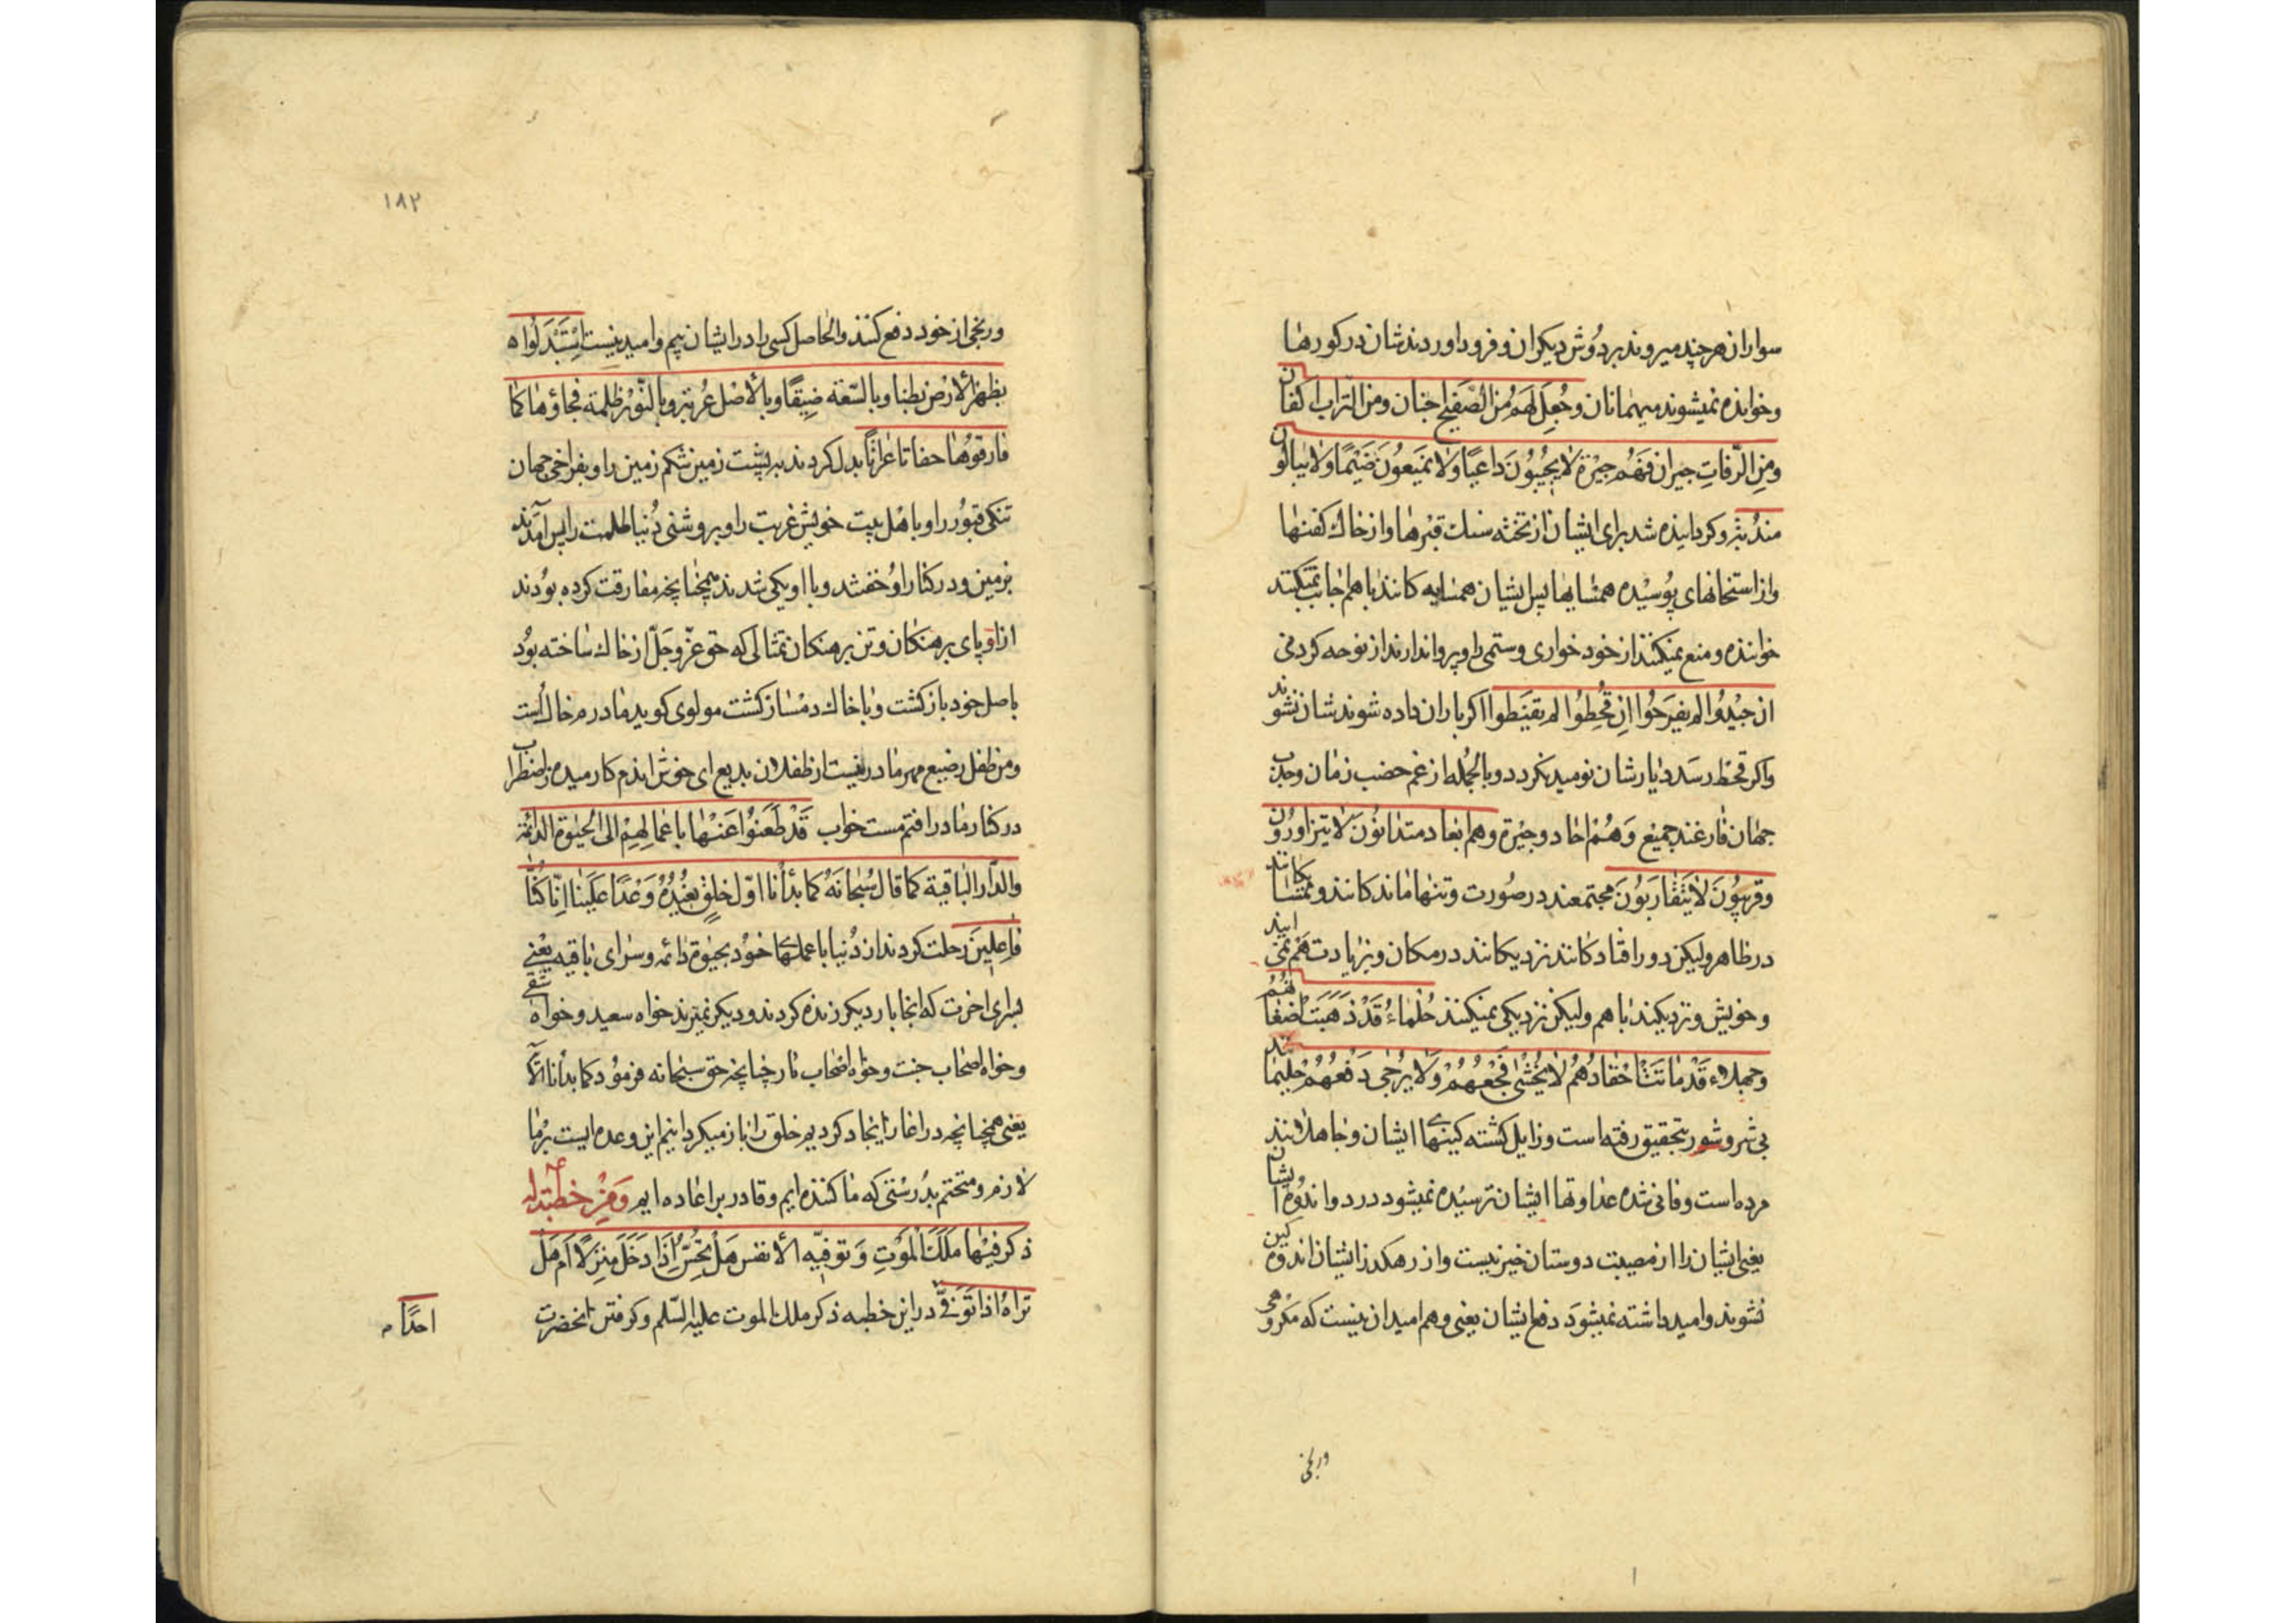 سواران هر چند میروند بر دوش دیکران و فرود اوردندشان در کورها
و خوانده نمیشوند میهمانان وجُعِلَ لَهُم من الصَفیح اجنان ومن التراب اکفان
ومِن الرّفاتِ جیران فَهُم جیرَة لایُجیبُونَ داعیًا ولا یَمنَعُونَ ضَیْمًا ولا یبالون
مندبَة و کردانیده شد برای ایشان از تخته سنك قبرها و از خاك کفنها
و از استخانهای پوسیده همسایها پس ایشان همسایه کانند با هم اجابت نمیکنند
خواننده و منع نمیکنند از خود خواری و ستمی را و پروا ندارند از نوحه کردنی
ان جیدُوا لم یفرَحُوا اِن قُحِطُوا لم یقنَطوا اکر باران داده شوند شاد نشوند
و اکر قحط رسد دیارشان نومید نکردد و بالجُمله از غم خصب زمان و جدب
جهان فارغند جمیع وَهُم احاد و جیْرة وهم ابعاد متدانوُنَ لا یتزاورُون
وقریبُونَ لا یَتَقاربَوُنَ مجتمعند در صورت و تنها ماند کانند و همسایکانند
در ظاهر ولیکن دور افتاد کانند نزدیکانند در مکان و بزیارت هم نمی ایند
و خویش و نزدیکند با هم ولیکن نزدیکی نمیکنند حُلَماءُ قَدْ ذَهَبَتْ اضغانهُم
وجهلاء قَدْ ماتَتْ احْقادُهُم لا یُخشی فَجْعُهُمْ وَلا یُرْجی دَفْعُهُمْ حلیمانند
بی شر و شور بتحقیق رفته است و زایل کشته کینهای ایشان و جاهلانند
مرده است و فانی شده عداوتها ایشان ترسیده نمیشود درد و اندوه ایشان
یعنی ایشان را از مصیبت دوستان خبر نیست و از رهکذر ایشان اندوهکین
نشوند و امید داشته نمیشود دفع ایشان یعنی وهم امید ان نیست که مکروهی
ورنجی
١٨٢
ورنجی از خود دفع کنند والحاصل کسی را در ایشان بیم و امید نیست اِسْتَبْدَلُواه
بظهر الارض بطنا وبالسّعة ضیقًا وبالأهْل غُربة وبالنّورْ ظلمة فجاؤها کما
فارقوُهٰا حفاتا عُراتًا بدل کردند به پشت زمین شکم زمین را و بفراخی جهان
تنکی قبوُر را و باهل بیت خویش غربت را و بروشنی دُنیا ظلمت را پس آمدند
بزمین و در کنار او خفتند و با او یکی شدند همچنانچه مفارقت کرده بوُدند
از او پای برهنکان و تن برهنکان تمثالی که حق عزّوجلّ از خاك ساخته بوُد
باصل خود باز کشت و با خاك دمساز کشت مولوی کوید مادرم خاك است
و من طفل رضیع مهر مادر نیست از طفلان بدیع ای خوش اندم کارمیده ز اضطراب
در کنار مادر افتم مست خواب قَدْ ظَعَنوُا عَنْها باعمالِهِمْ الی الحیٰوة الدائمة
والدّار الباقیة کما قال سُبْحانَهُ کما بدأنا اوّل خلقٍ نعُیْدُهُ وَعْدًا عَلَینا اِنّا کُنّا
فاعِلینَ رحلت کردند از دُنیا با عملهای خوُد بحیٰوة دائمه و سرای باقیه یعْنی
سرای اخرت که انجا بار دیکر زنده کردند و دیکر نمیرند خواه سعید و خواه شقی
و خواه اصحاب جنت و خواه اصحاب نار چنانچه حق سبحانه فرموُد کما بدأنا الآ
یعنی همچنانچه در اغاز ایجاد کردیم خلق را باز میکردانیم این وعده ایست بر ما
لازم و متحتم بدُرستی که ما کننده ایم و قادر بر اعاده ایم وَمِنْ خطبَة له
ذکر فیْها مَلَكَ المَوْتِ وَتوفیّه الأنفس هَلْ یُحَسُّ اِذا دَخَلَ منزِلًا اَم هَلْ
تراهُ اذا تَوَفّی در این خطبه ذکر ملك الموت علیه السّلم و کرفتن انحضرت
احدًا